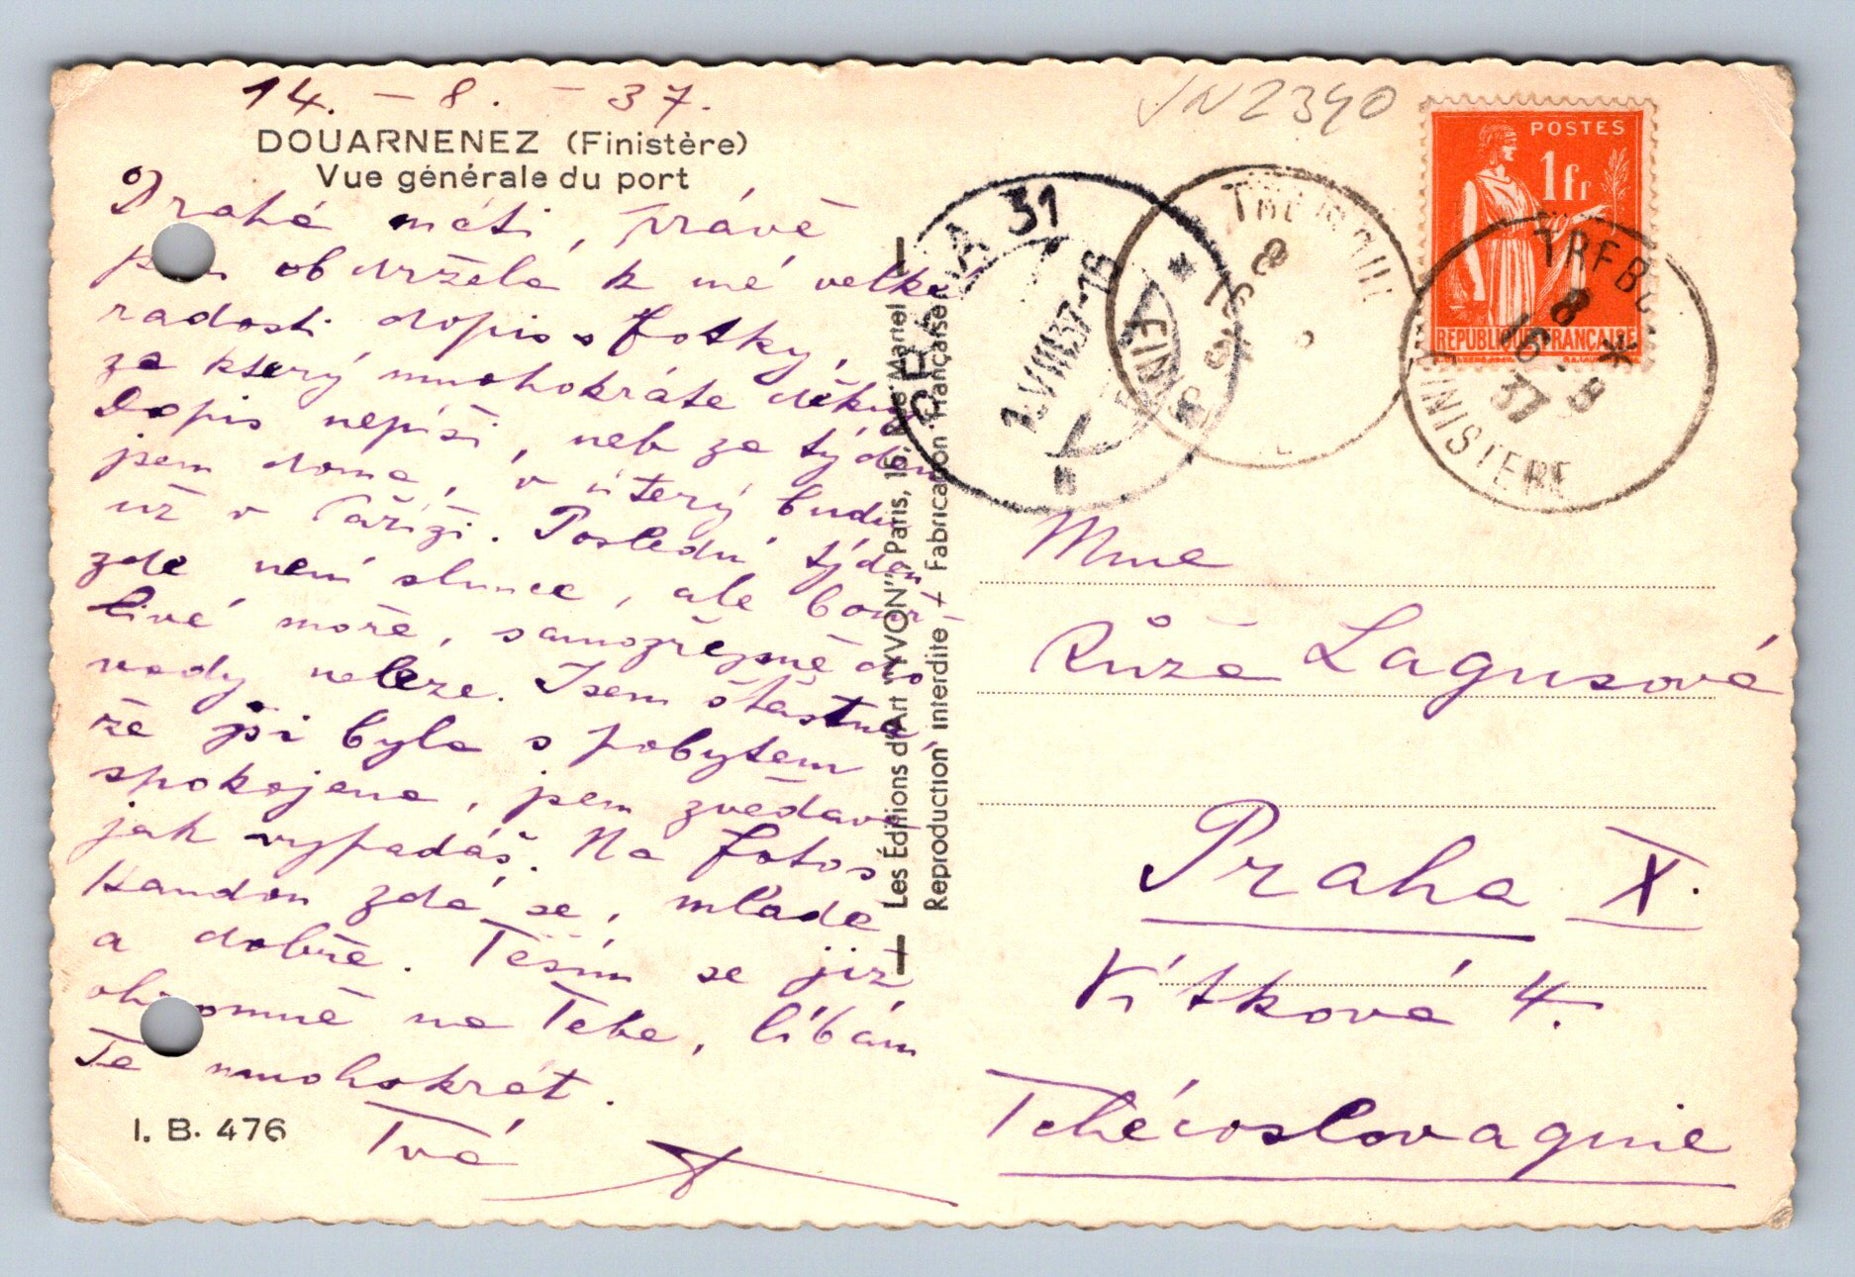 14. - 8. - 37.
DOUARNENEZ (Finistère)
Vue générale du port
Drahá máti, právě
jsem obdržela k mé velké
radosti dopis s fotky,
za který mnohokráte děkuji
Dopis nepíši, neb za týden
jsem doma, v úterý budu
už v Paříži. Poslední týden
zde není slunce, ale bouř-
livé moře, samozřejmě do
vody neleze. Jsem šťastna,
že jsi byla s pobytem
spokojena, jsem zvědavá
jak vypadáš. Na fotos
zdá se, mladě
a dobře. Těším se již
ohromně na Tebe, líbám
Tě mnohokrát.
Tvá
I. B. 476
Les Éditions d'Art "YVON", Paris, 15, Rue Martel
Reproduction interdite - Fabrication Française
PRAHA 31
VIII 37-16
FINISTERE
8
16
TREBOUL
8
16 - 8
37
FINISTERE
JN2390
POSTES
1fr
REPUBLIQUE FRANÇAISE
Mme
Růža Lagusová
Praha X.
Vítkova 4.
Tchécoslovaquie